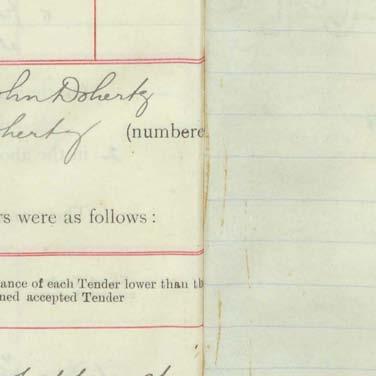 ohn Doherty
oherty (numbere
rs were as follows :
ance of each Tender lower than th
ned accepted Tender